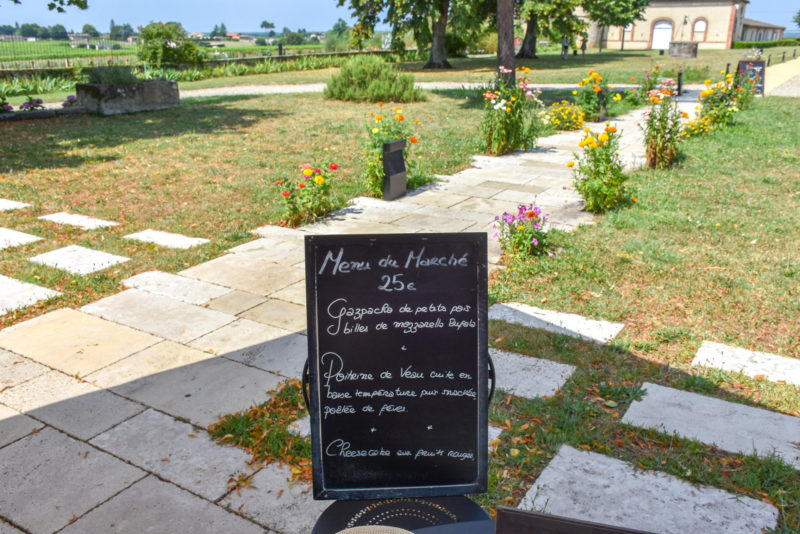 Menu du Marché
25€
Gazpacho de petits pois
billes de mozzarella Bufala
*
Poitrine de Veau cuite en
basse température puis snackée
poêlée de fèves.
*
Cheesecake aux fruits rouges